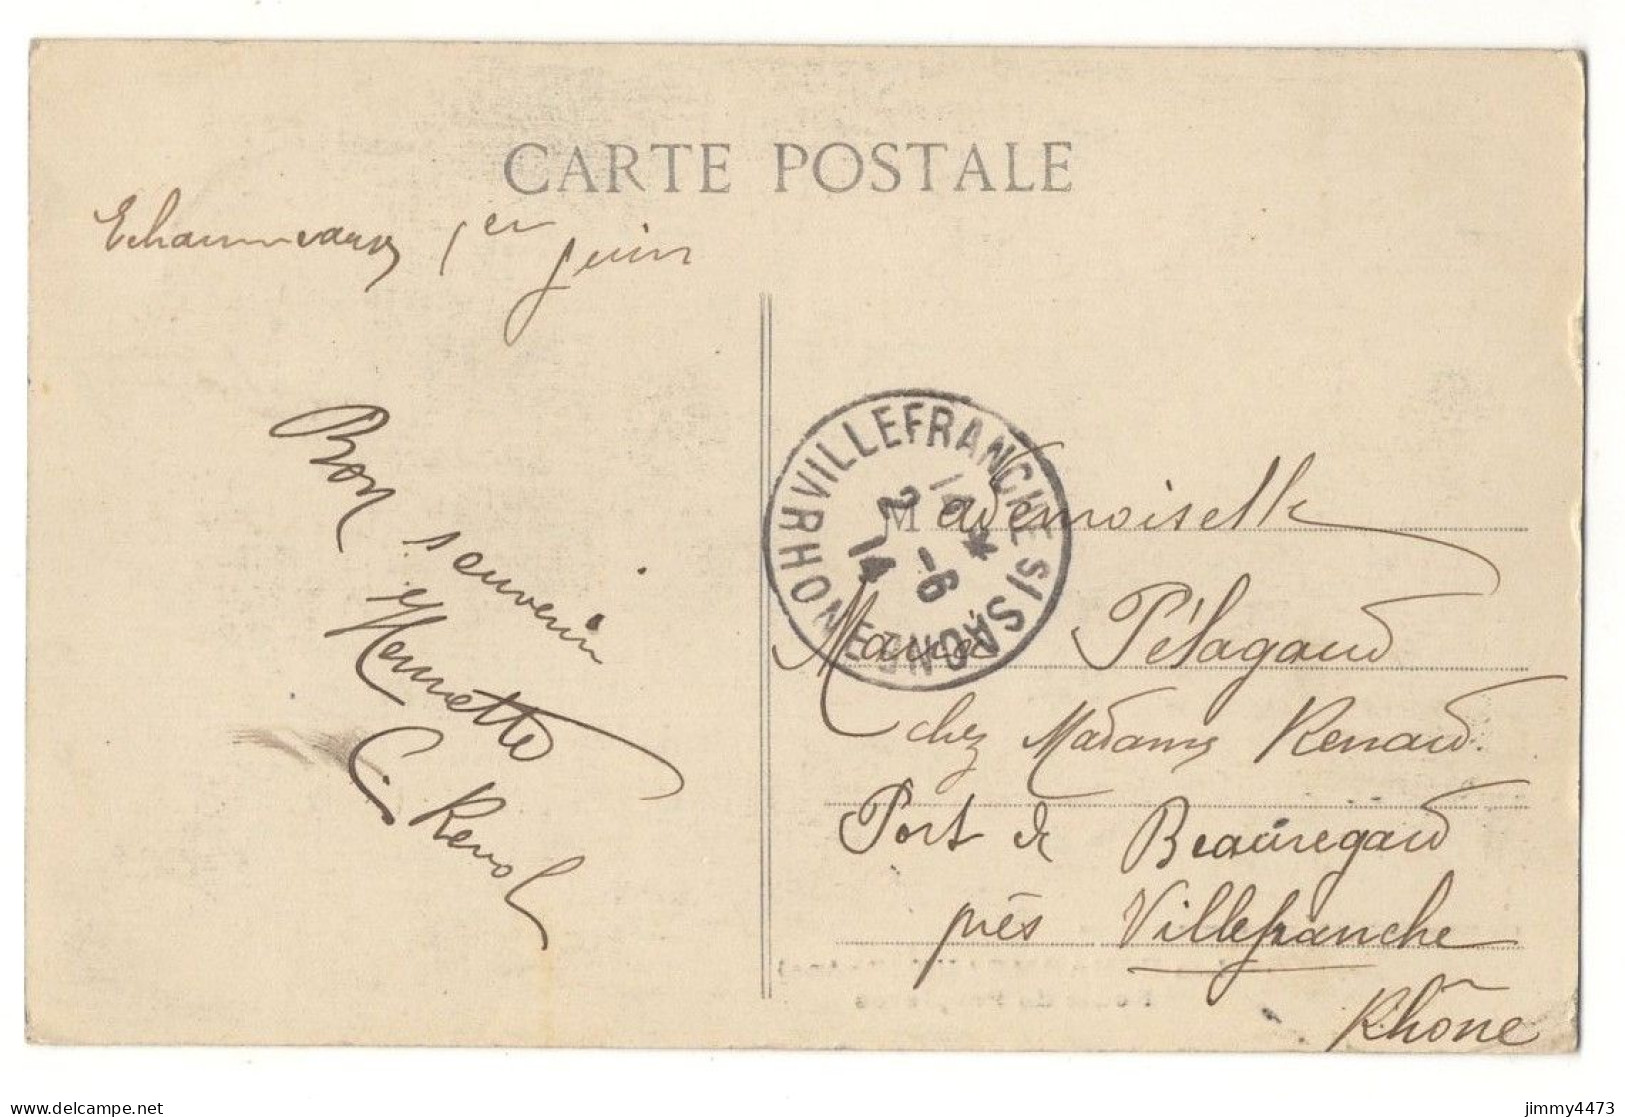 CARTE POSTALE
1er juin
Bon souvenir
Henriette
C. Revol
VILLEFRANCHE S/ SAONE
RHONE
14 *
2 - 6
14
Mademoiselle
Marie Pélagaud
chez Madame Renaud.
Port de Beauregard
près Villefranche
Rhône
delcampe.net
jimmy4473